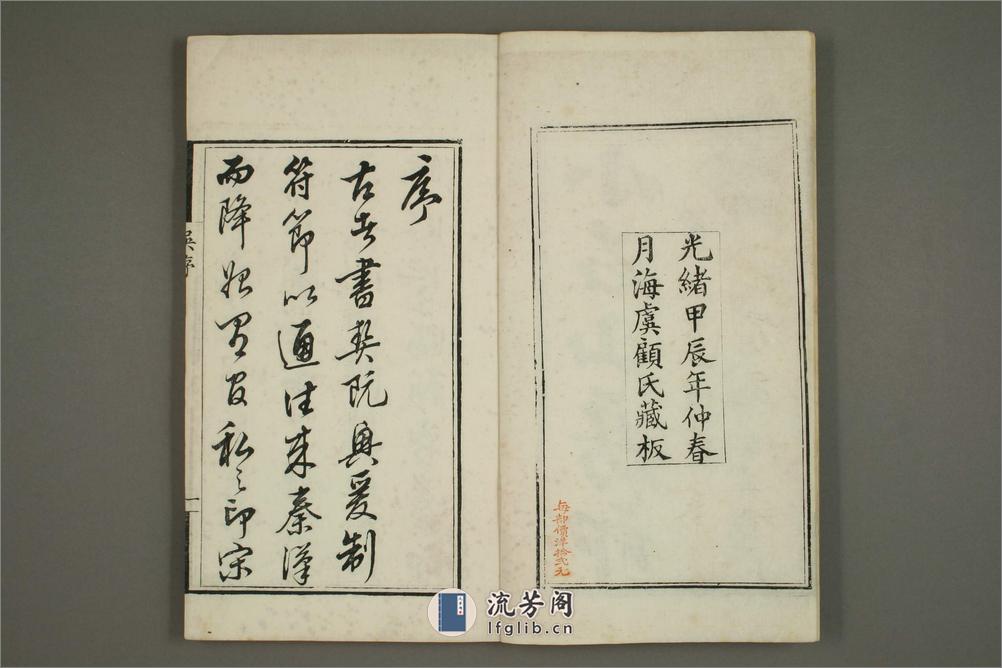 光緒甲辰年仲春
月海虞顧氏藏板
每部價洋拾弍元
序
古者書契既興爰制
符節以通往來秦漢
而降始有官私之印宋
吳序
一
流芳阁
lfglib.cn